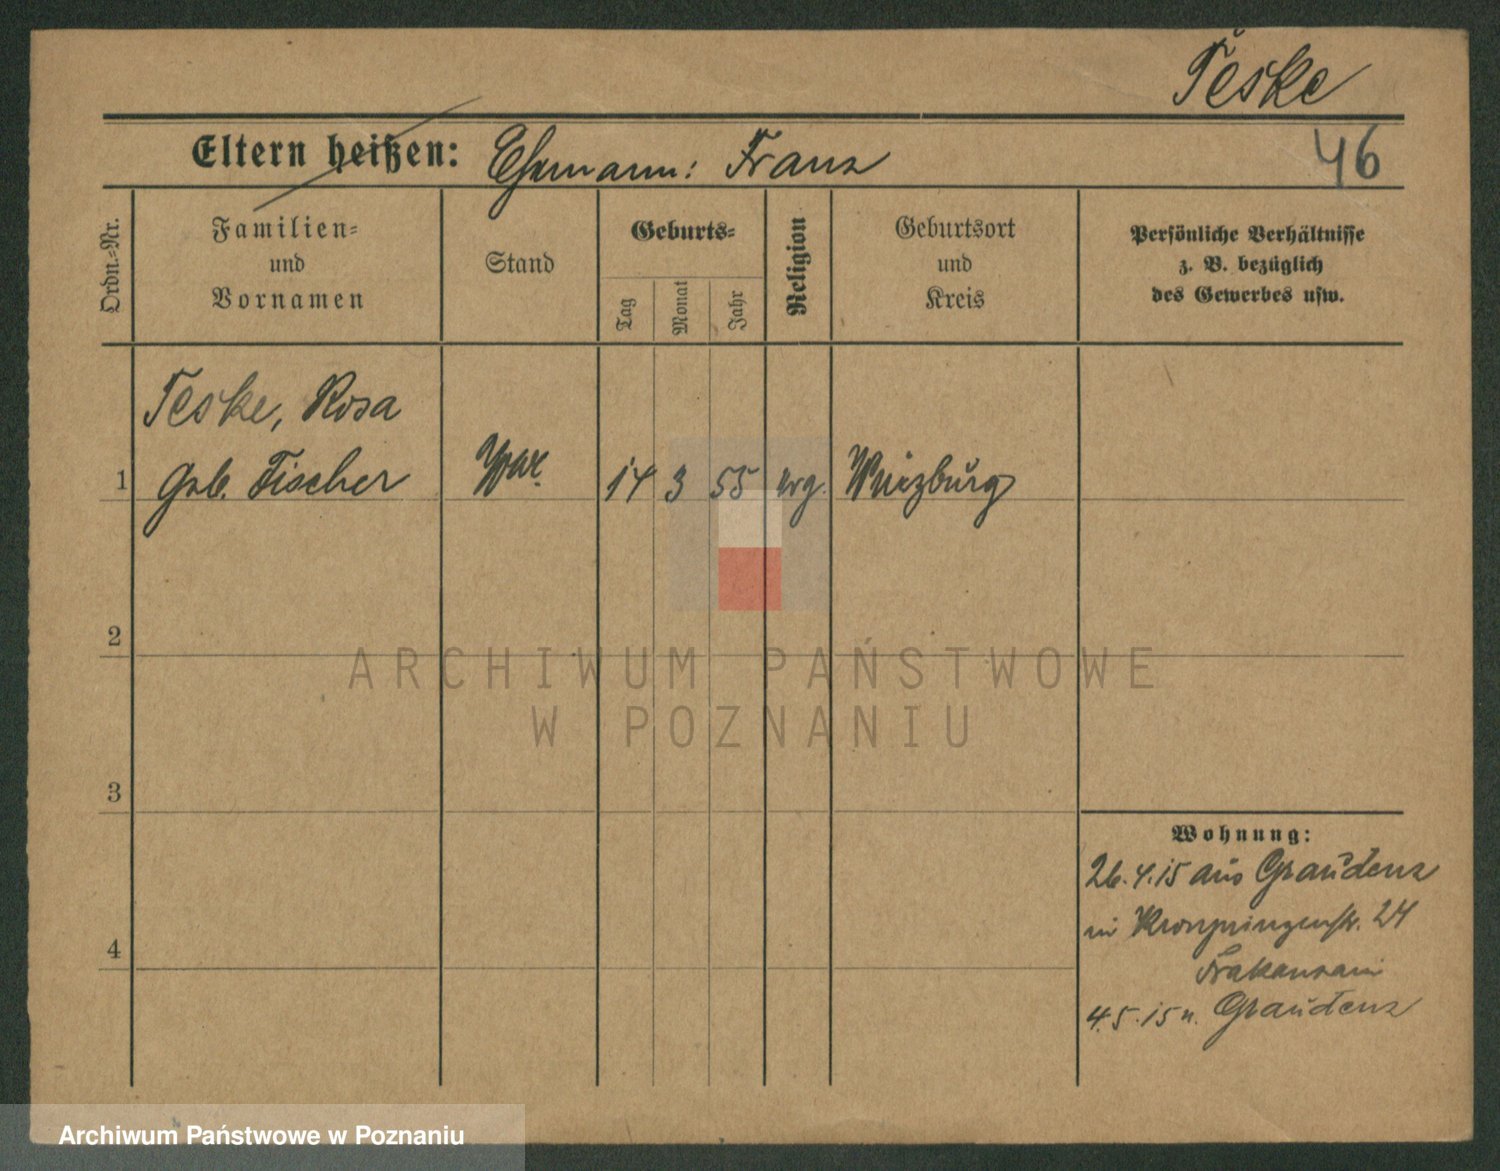 Teske
46
Eltern heißen: Ehemann: Franz
Ordn.-Nr.
Familien-
und
Vornamen
Stand
Geburts-
Tag
Monat
Jahr
Religion
Geburtsort
und
Kreis
Persönliche Verhältnisse
z. B. bezüglich
des Gewerbes usw.
Teske, Rosa
1 geb. Fischer Ww. 14 3 55 evg. Würzburg
2
3
4
Wohnung:
26.4.15 aus Graudenz
in Kronprinzenstr. 24
4.5.15 n. Graudenz
ARCHIWUM PAŃSTWOWE
W POZNANIU
Archiwum Państwowe w Poznaniu